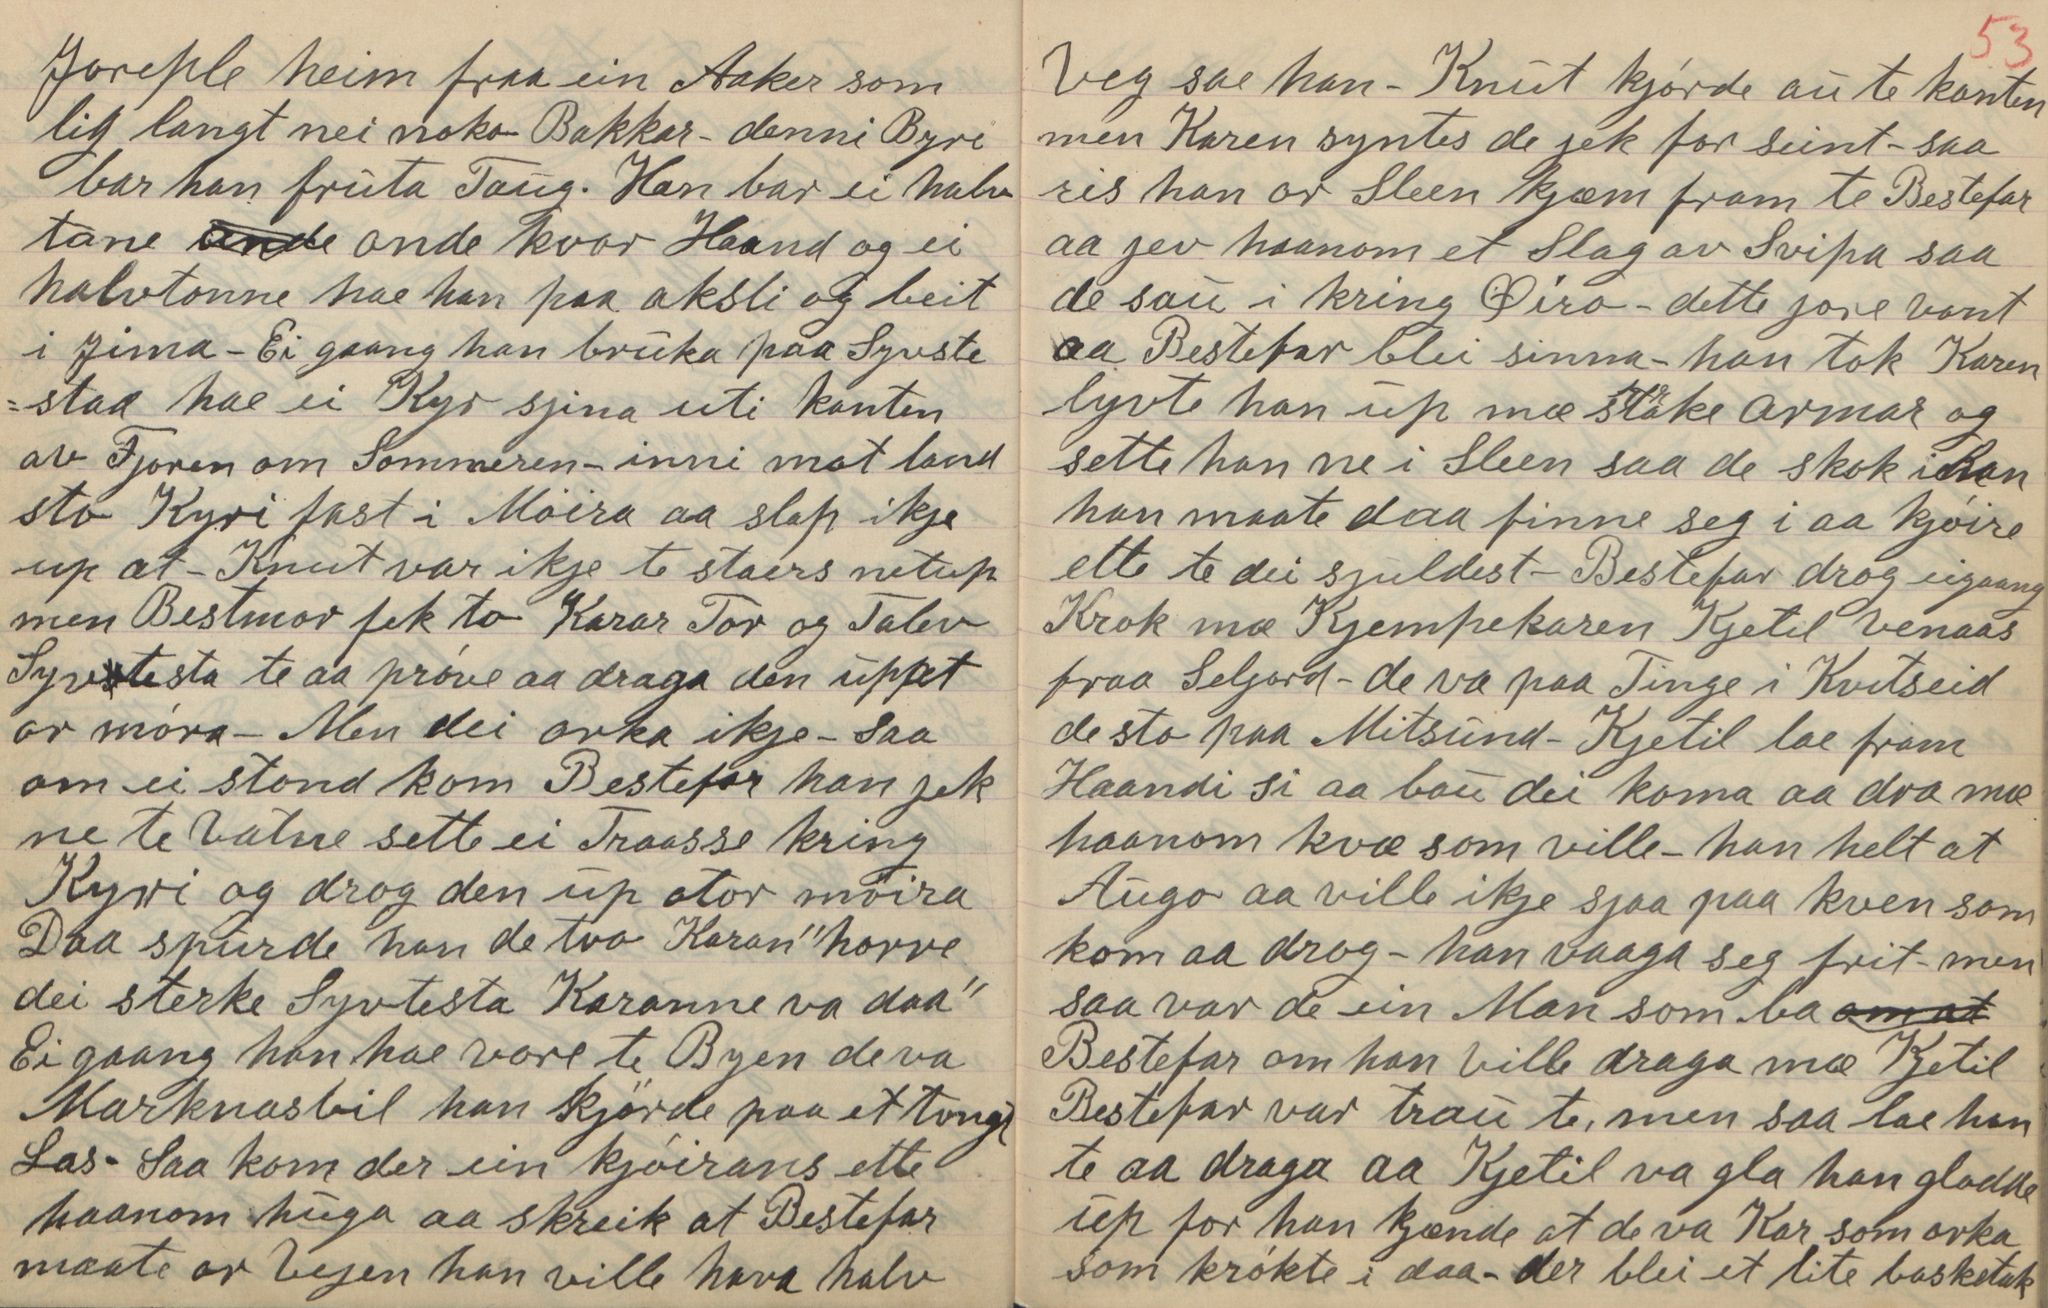 Joreple heim fraa ein Aaker som
lig langt nei noko Bakkar - denni Byri
bar han fruta Taug. Han bar ei halv
tøne ende onde kvar Haand og ei
halvtonne hae han paa aksli og beit
i Jima - Ei gaang han bruka paa Syvste
=staa hae ei Kyr sjina uti kanten
av Fjoren om Sommeren - inni mot land
sto Kyri fast i Möira aa slap ikje
up at - Knut var ikje te staers netup
men Bestmor fek to Karar Tor og Talev
Syvtesta te aa pröve aa draga den uppat
or móra - Men dei orka ikje - saa
om ei stond kom Bestefar han jek
ne te Vatne sette ei Traasse kring
Kyri og drog den up otor móira
Daa spurde han de tvo Karan "horre
dei sterke Syvtesta Karanne va daa"
Ei gaang han hae vore te Byen de va
Marknasbil han kjörde paa et tongt
Las - Saa kom der ein kjóirans ette
haanom huga aa skreik at Bestefar
maate or Vejen han ville hava halv
53
Veg sae han - Knut kjórde au te kanten
men Karen syntes de jek for seint - saa
ris han or Sleen kjæm fram te Bestefar
aa jev haanom et Slag av Svipa saa
de sau i kring Øiro - dette jore vont
aa Bestefar blei sinna - han tok Karen
lyvte han up mæ stærke Armar og
sette han ne i Sleen saa de skok i han
han maate daa finne seg i aa kjóire
ette te dei sjuldest - Bestefar drog eigaang
Krok mæ Kjempekaren Kjetil Venaas
fraa Seljord - de va paa Tinge i Kvitseid
de sto paa Mitsund - Kjetil lae fram
Haandi si aa bau dei koma aa dra mæ
haanom kvæ som ville - han helt at
Augo aa ville ikje sjaa paa kven som
kom aa drog - han vaaga seg frit - men
saa var de ein Man som ba om at
Bestefar om han ville draga mæ Kjetil
Bestefar var trau te, men saa lae han
te aa draga aa Kjetil va gla han gladde
up for han kjænde at de va Kar som orka
som krókte i daa - der blei et lite basketak